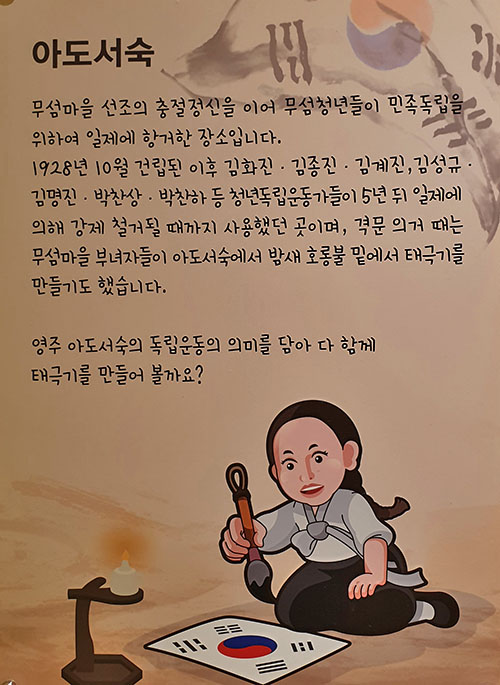 아도서숙
무섬마을 선조의 충절정신을 이어 무섬청년들이 민족독립을
위하여 일제에 항거한 장소입니다.
1928년 10월 건립된 이후 김화진 · 김종진 · 김계진, 김성규 ·
김명진 · 박찬상 · 박찬하 등 청년독립운동가들이 5년 뒤 일제에
의해 강제 철거될 때까지 사용했던 곳이며, 격문 의거 때는
무섬마을 부녀자들이 아도서숙에서 밤새 호롱불 밑에서 태극기를
만들기도 했습니다.
영주 아도서숙의 독립운동의 의미를 담아 다 함께
태극기를 만들어 볼까요?